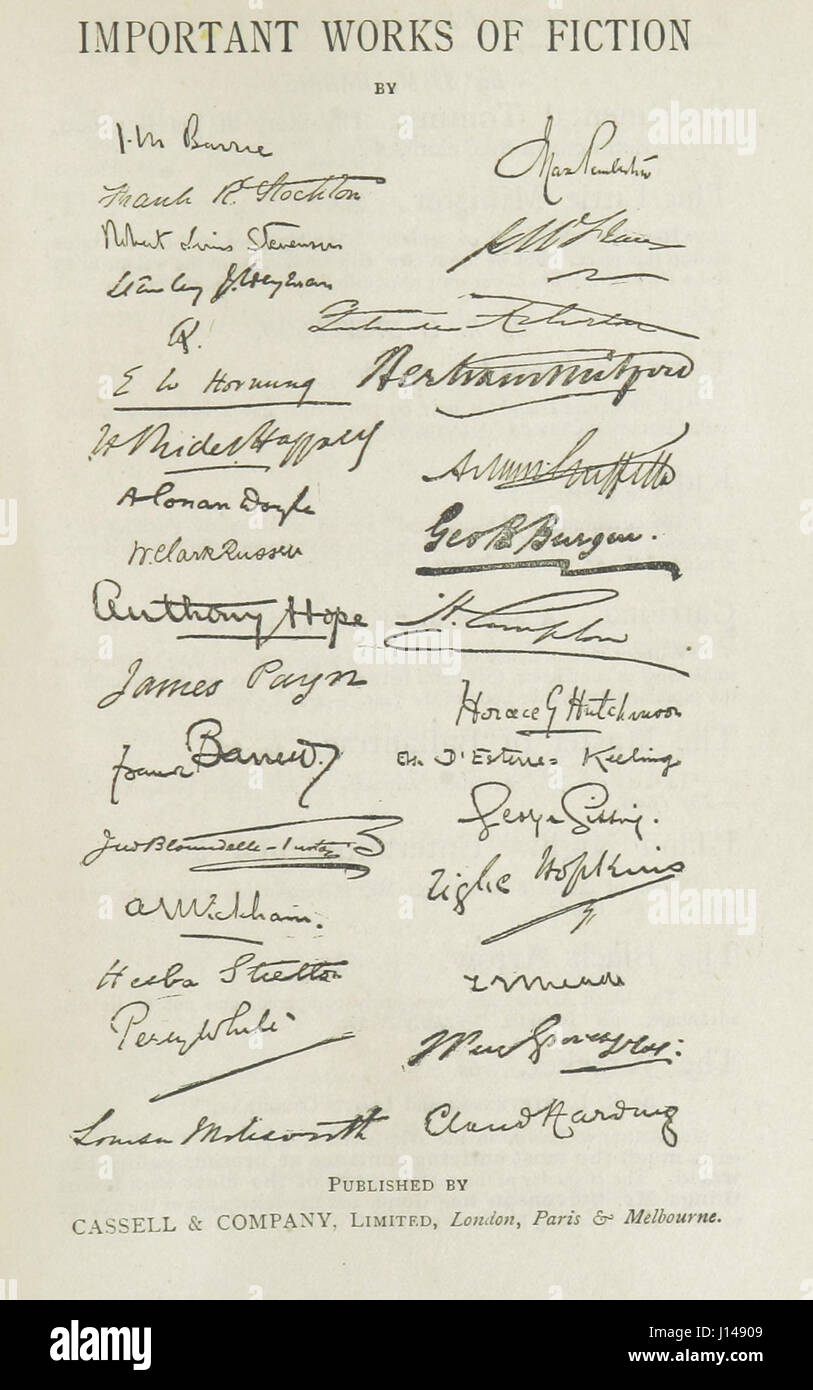 IMPORTANT WORKS OF FICTION
BY
J. M. Barrie
Max Pemberton
Frank R. Stockton
Robert Louis Stevenson
Stanley J. Weyman
Q.
Gertrude Atherton
E W Hornung
Bertram Mitford
H Rider Haggard
Arthur Griffiths
A Conan Doyle
Geo B Burgin.
W. Clark Russell
Anthony Hope
H. Compton
James Payn
Horace G Hutchinson
Frank Barrett.
D'Esterre-Keeling
George Gissing.
Jno Bloundelle-Burton
Tighe Hopkins
A Wickham.
Hesba Stretton
L T Meade
Percy White
Louisa Molesworth
Claud Harding
PUBLISHED BY
CASSELL & COMPANY, LIMITED, London, Paris & Melbourne.
alamy stock photo
alamy
J14909
www.alamy.com